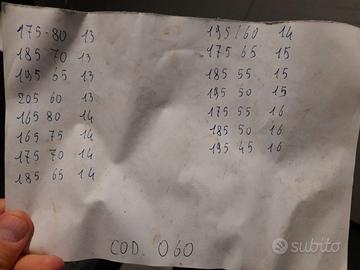 175-80 13
185 70 13
195 65 13
205 60 13
165 80 14
165 75 14
175 70 14
185 65 14
195/60 14
175 65 15
185 55 15
195 50 15
175 55 16
185 50 16
195 45 16
COD. 060
subito